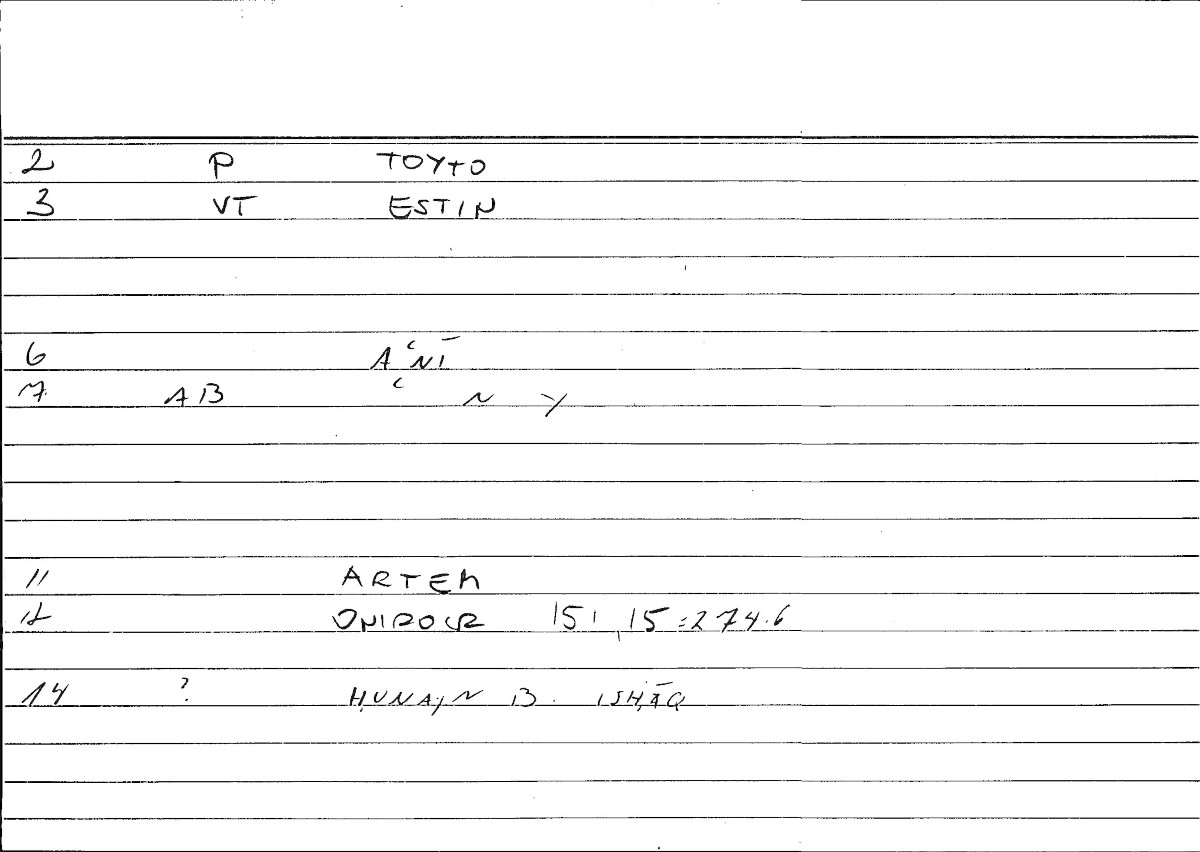 2 P TOYTO
3 VT ESTIN
6 AʿNĪ
7 AB ʿ N Y
11 ARTEM
12 ONIROCR 151,15=274.6
14 ? ḤUNAYN B. ISḤĀQ